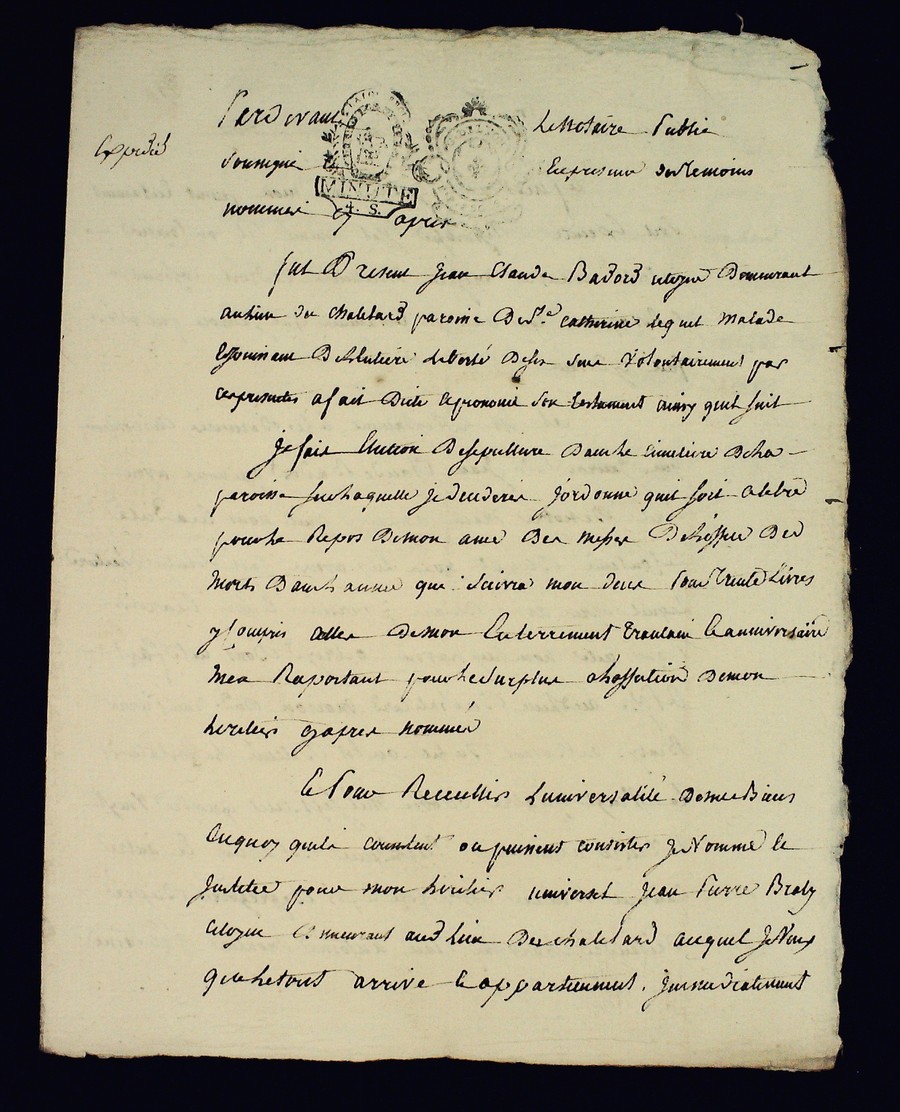 Expedié
Pardevant Le Notaire Public
MINUTE
4. S.
soussigné et en presence des temoins
nommes cy apres
fut Present jean Claude Badord citoyen Demeurant
au lieu de chalebard paroisse De Ste. catherine lequel malade
et jouissant De l'entiere liberté De ses sens volontairement par
ces presentes a fait Dicté et prononcé son testament ainsy quil suit
je fais Election De sepulture Dans le cimetiere De la
paroisse sur laquelle je decederai j'ordonne quil soit celebré
pour le Repos De mon ame Des messes De l'office Des
morts Dans l'année qui suivra mon deces Pour trente Livres
y compris celles De mon Enterrement trentain et anniversaire
m'en Raportant pour le surplus a l'affection De mon
heritier cy apres nommé
Et Pour Recueillir L'universalité De mes Biens
En quoy quils consistent ou puissent consister je Nomme et
justitue pour mon heritier universel jean Pierre
citoyen Demeurant audt lieu De chalebard auquel je veux
que le tout arrive et appartiennent jmmediatement